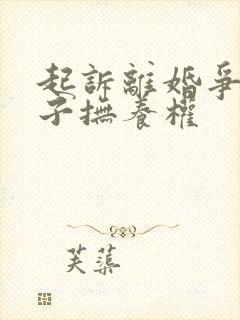 起訴離婚爭
子撫養權
芙蕖